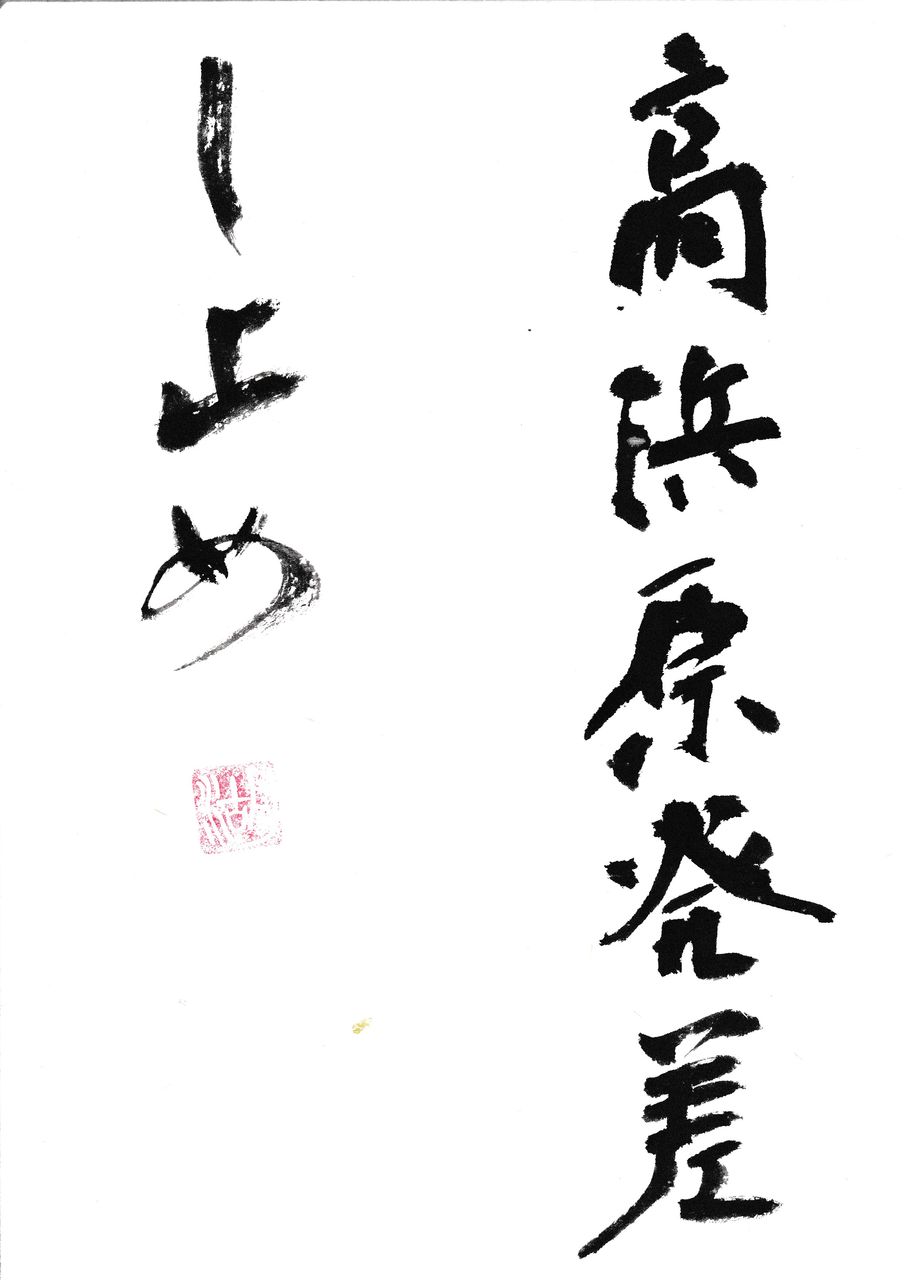 高浜原発差
し止め